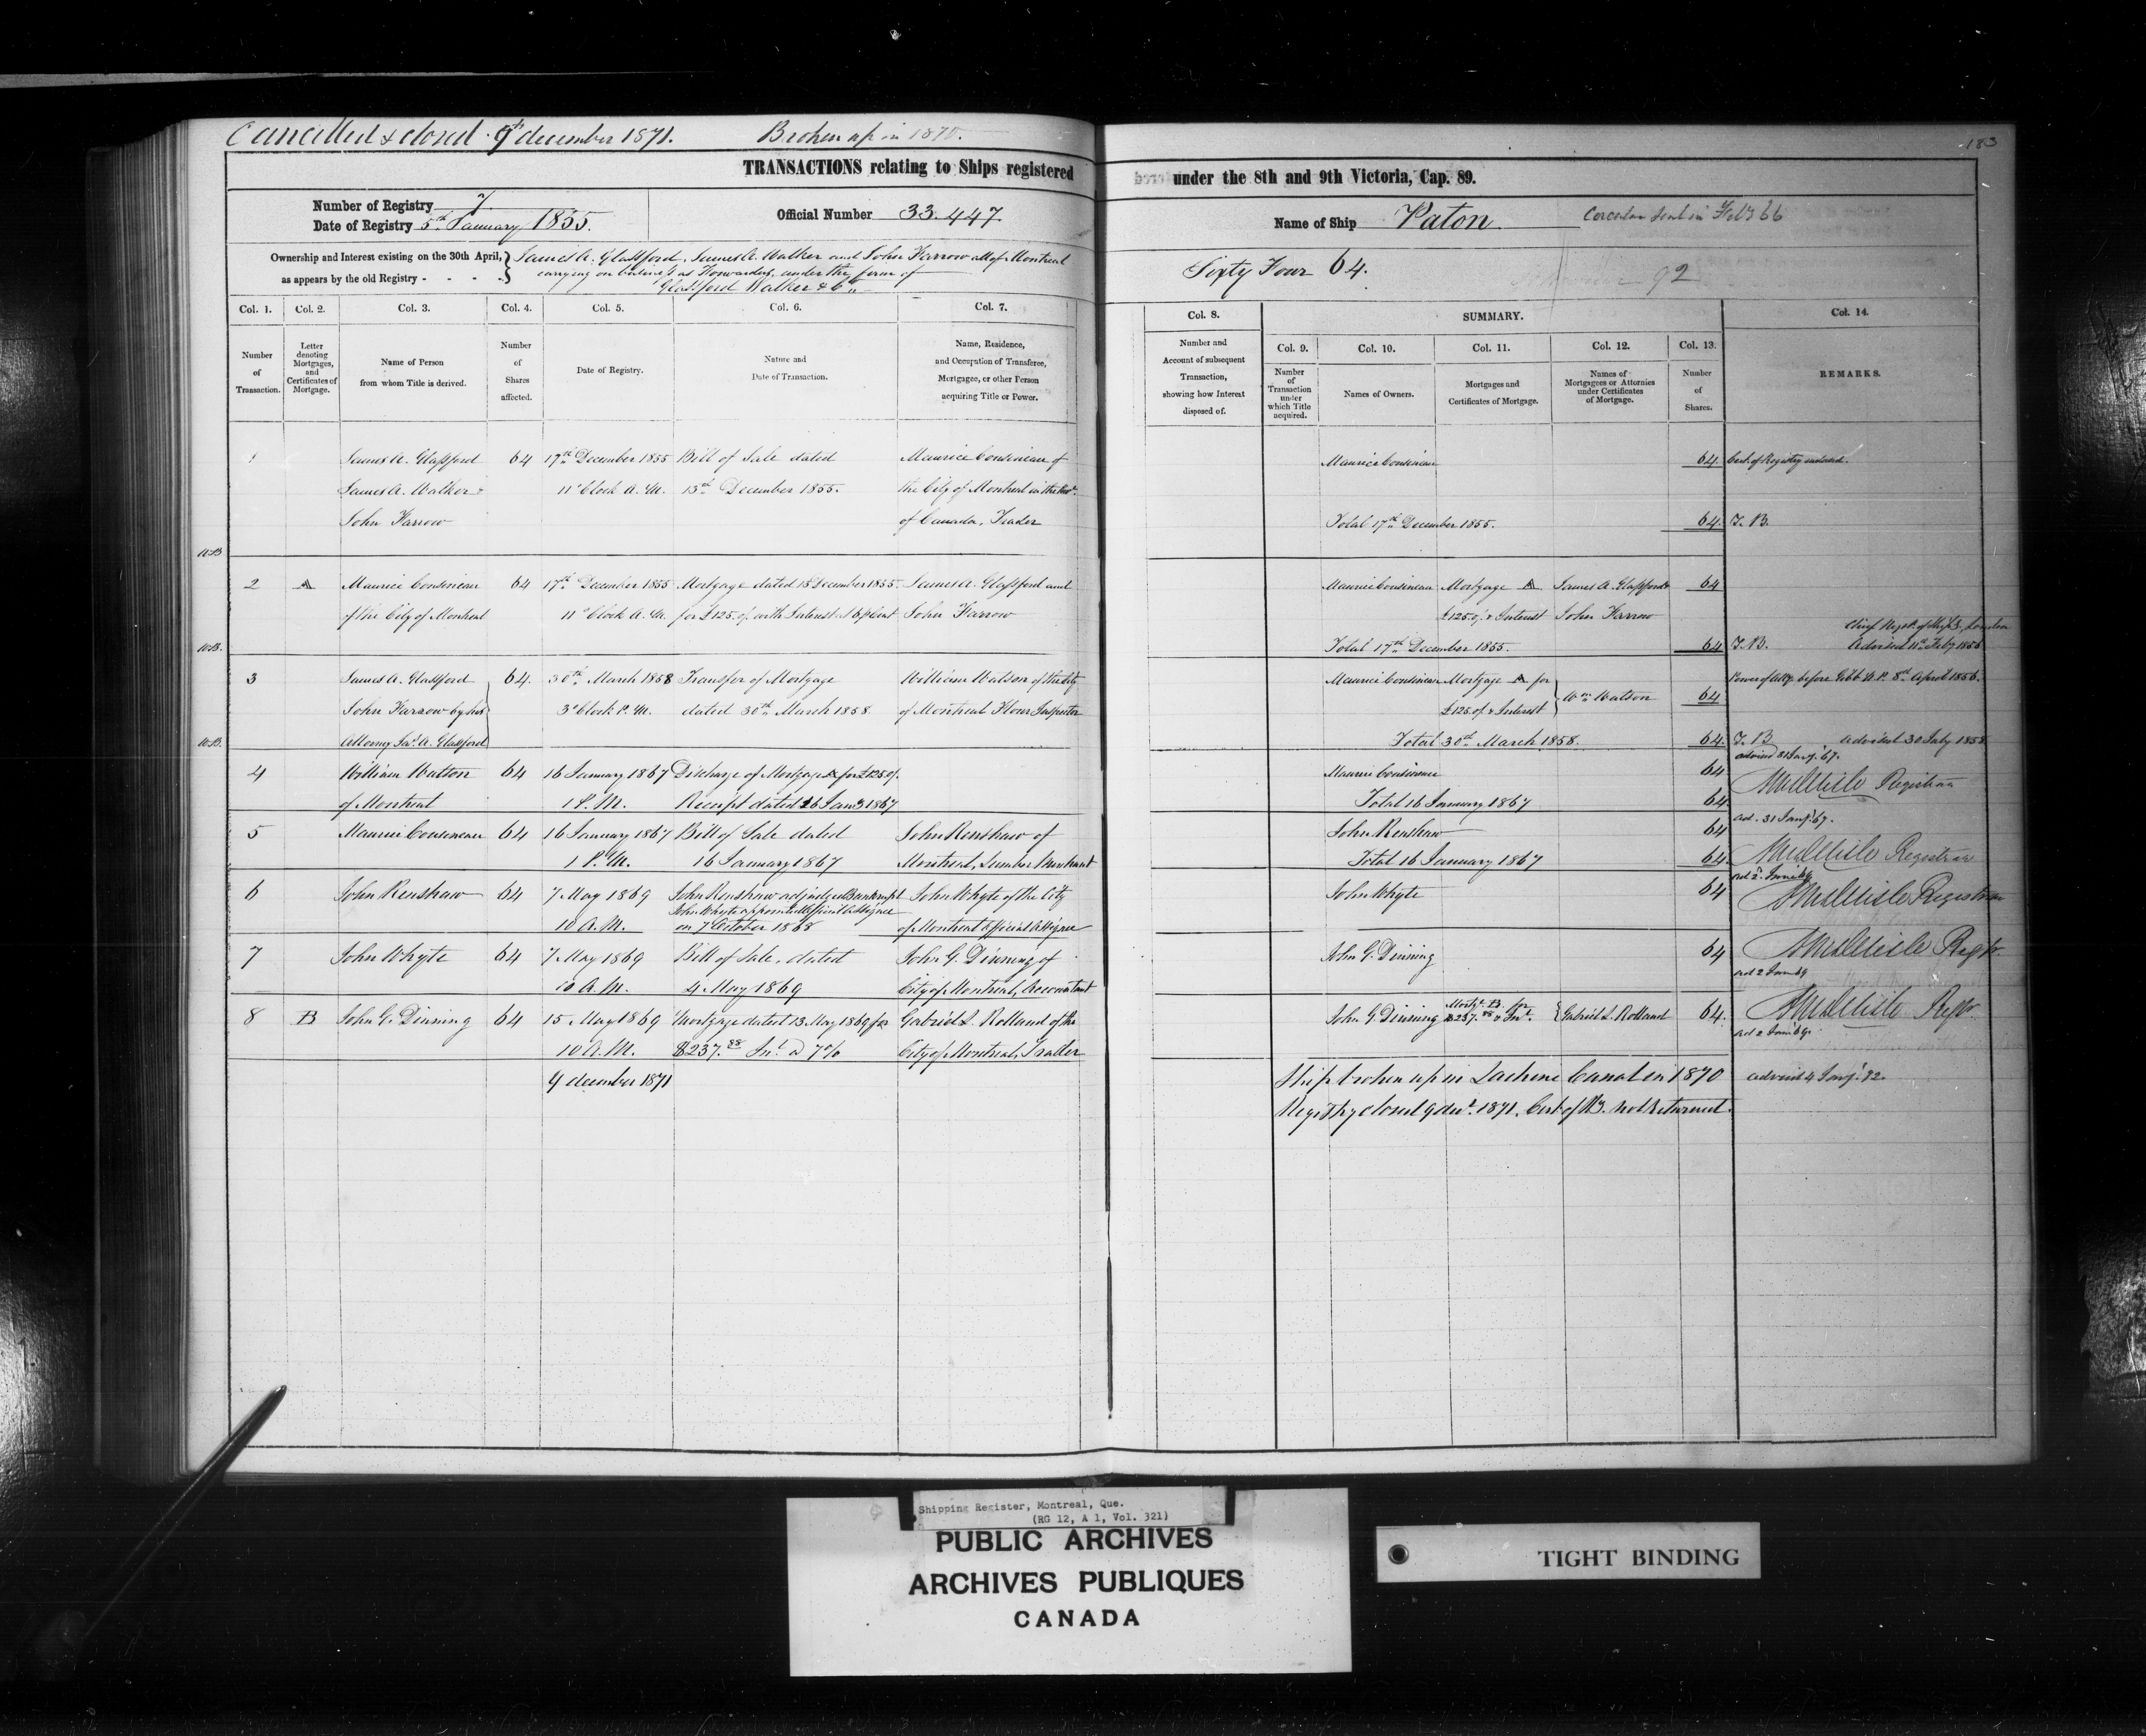 Cancelled & closed 9th december 1871. Broken up in 1870.
183
TRANSACTIONS relating to Ships registered under the 8th and 9th Victoria, Cap. 89.
Number of Registry 7.
Date of Registry 5th January 1855.
Official Number 33.447.
Name of Ship Paton
Circular sent in Feby 66
Ownership and Interest existing on the 30th April, as appears by the old Registry - - - -
James A. Glassford, James A. Walker and John Farrow all of Montreal
carrying on business as Forwarders, under the firm of
Glassford Walker & Co.
Sixty Four 64.
92
Col. 1. Col. 2. Col. 3. Col. 4. Col. 5. Col. 6. Col. 7.
Number of Transaction.
Letter denoting Mortgages, and Certificates of Mortgage.
Name of Person from whom Title is derived.
Number of Shares affected.
Date of Registry.
Nature and Date of Transaction.
Name, Residence, and Occupation of Transferee, Mortgagee, or other Person acquiring Title or Power.
Col. 8. SUMMARY. Col. 14.
Number and Account of subsequent Transaction, showing how Interest disposed of.
Col. 9. Col. 10. Col. 11. Col. 12. Col. 13.
Number of Transaction under which Title acquired.
Names of Owners.
Mortgages and Certificates of Mortgage.
Names of Mortgagees or Attornies under Certificates of Mortgage.
Number of Shares.
REMARKS.
1 James A. Glassford 64 17th December 1855 Bill of Sale dated Maurice Cousineau of
James A. Walker & 11 o'Clock A.M. 15th December 1855. the City of Montreal in the
John Farrow of Canada, Trader
Maurice Cousineau 64 Cert. of Registry endorsed.
Total 17th December 1855. 64 T.B.
2 A Maurice Cousineau 64 17th December 1855 Mortgage dated 15 December 1855 James A. Glassford and
of the City of Montreal 11 o'Clock A.M. for £125 with Interest John Farrow
Maurice Cousineau Mortgage A James A. Glassford & 64
£125 & Interest John Farrow
Total 17th December 1855. 64 T.B. Advised 11th Feby 1856
3 James A. Glassford 64. 30th March 1858 Transfer of Mortgage William Watson of the City
John Farrow by his 3 o'Clock P.M. dated 30th March 1858 of Montreal Flour Inspector
Attorney Jas. A. Glassford
Maurice Cousineau Mortgage A for Wm Watson 64 Power of Atty. before Gibb N.P. 8th April 1856.
£125 & Interest
Total 30th March 1858. 64. T.B. advised 30 July 1858
4 William Watson 64 16 January 1867 Discharge of Mortgage A for £125
of Montreal 1 P.M. Receipt dated 16 Jany 1867
Maurice Cousineau 64 advised 31 Jany. 67.
Total 16 January 1867 64 Registrar
5 Maurice Cousineau 64 16 January 1867 Bill of Sale dated John Renshaw of
1 P.M. 16 January 1867 Montreal, Lumber Merchant
John Renshaw 64 ad. 31 Jany. 67.
Total 16 January 1867 64 Registrar
6 John Renshaw 64 7 May 1869 John Renshaw adjudged Bankrupt John Whyte of the City
John Whyte appointed Official Assignee
10 A.M. on 7 October 1868 of Montreal Official Assignee
John Whyte 64 ad 2 June 69 Registrar
7 John Whyte 64 7 May 1869 Bill of Sale, dated John G. Dinning of
10 A.M. 4 May 1869 City of Montreal, Accountant
John G. Dinning 64 Regr.
ad 2 June 69
8 B John G. Dinning 64 15 May 1869 Mortgage dated 13 May 1869 for Gabriel L. Rolland of the
10 A.M. $237.88 Int. @ 7 % City of Montreal, Trader
John G. Dinning Mortge. B. for $237.88 & Int. Gabriel L. Rolland 64. Regr.
ad 2 June 69
9 december 1871
Ship broken up in Lachine Canal in 1870 advised 4 Jany. 72.
Registry closed 9 decr. 1871. Cert. of Ry. not returned.
Shipping Register, Montreal, Que.
(RG 12, A 1, Vol. 321)
PUBLIC ARCHIVES
ARCHIVES PUBLIQUES
CANADA
TIGHT BINDING